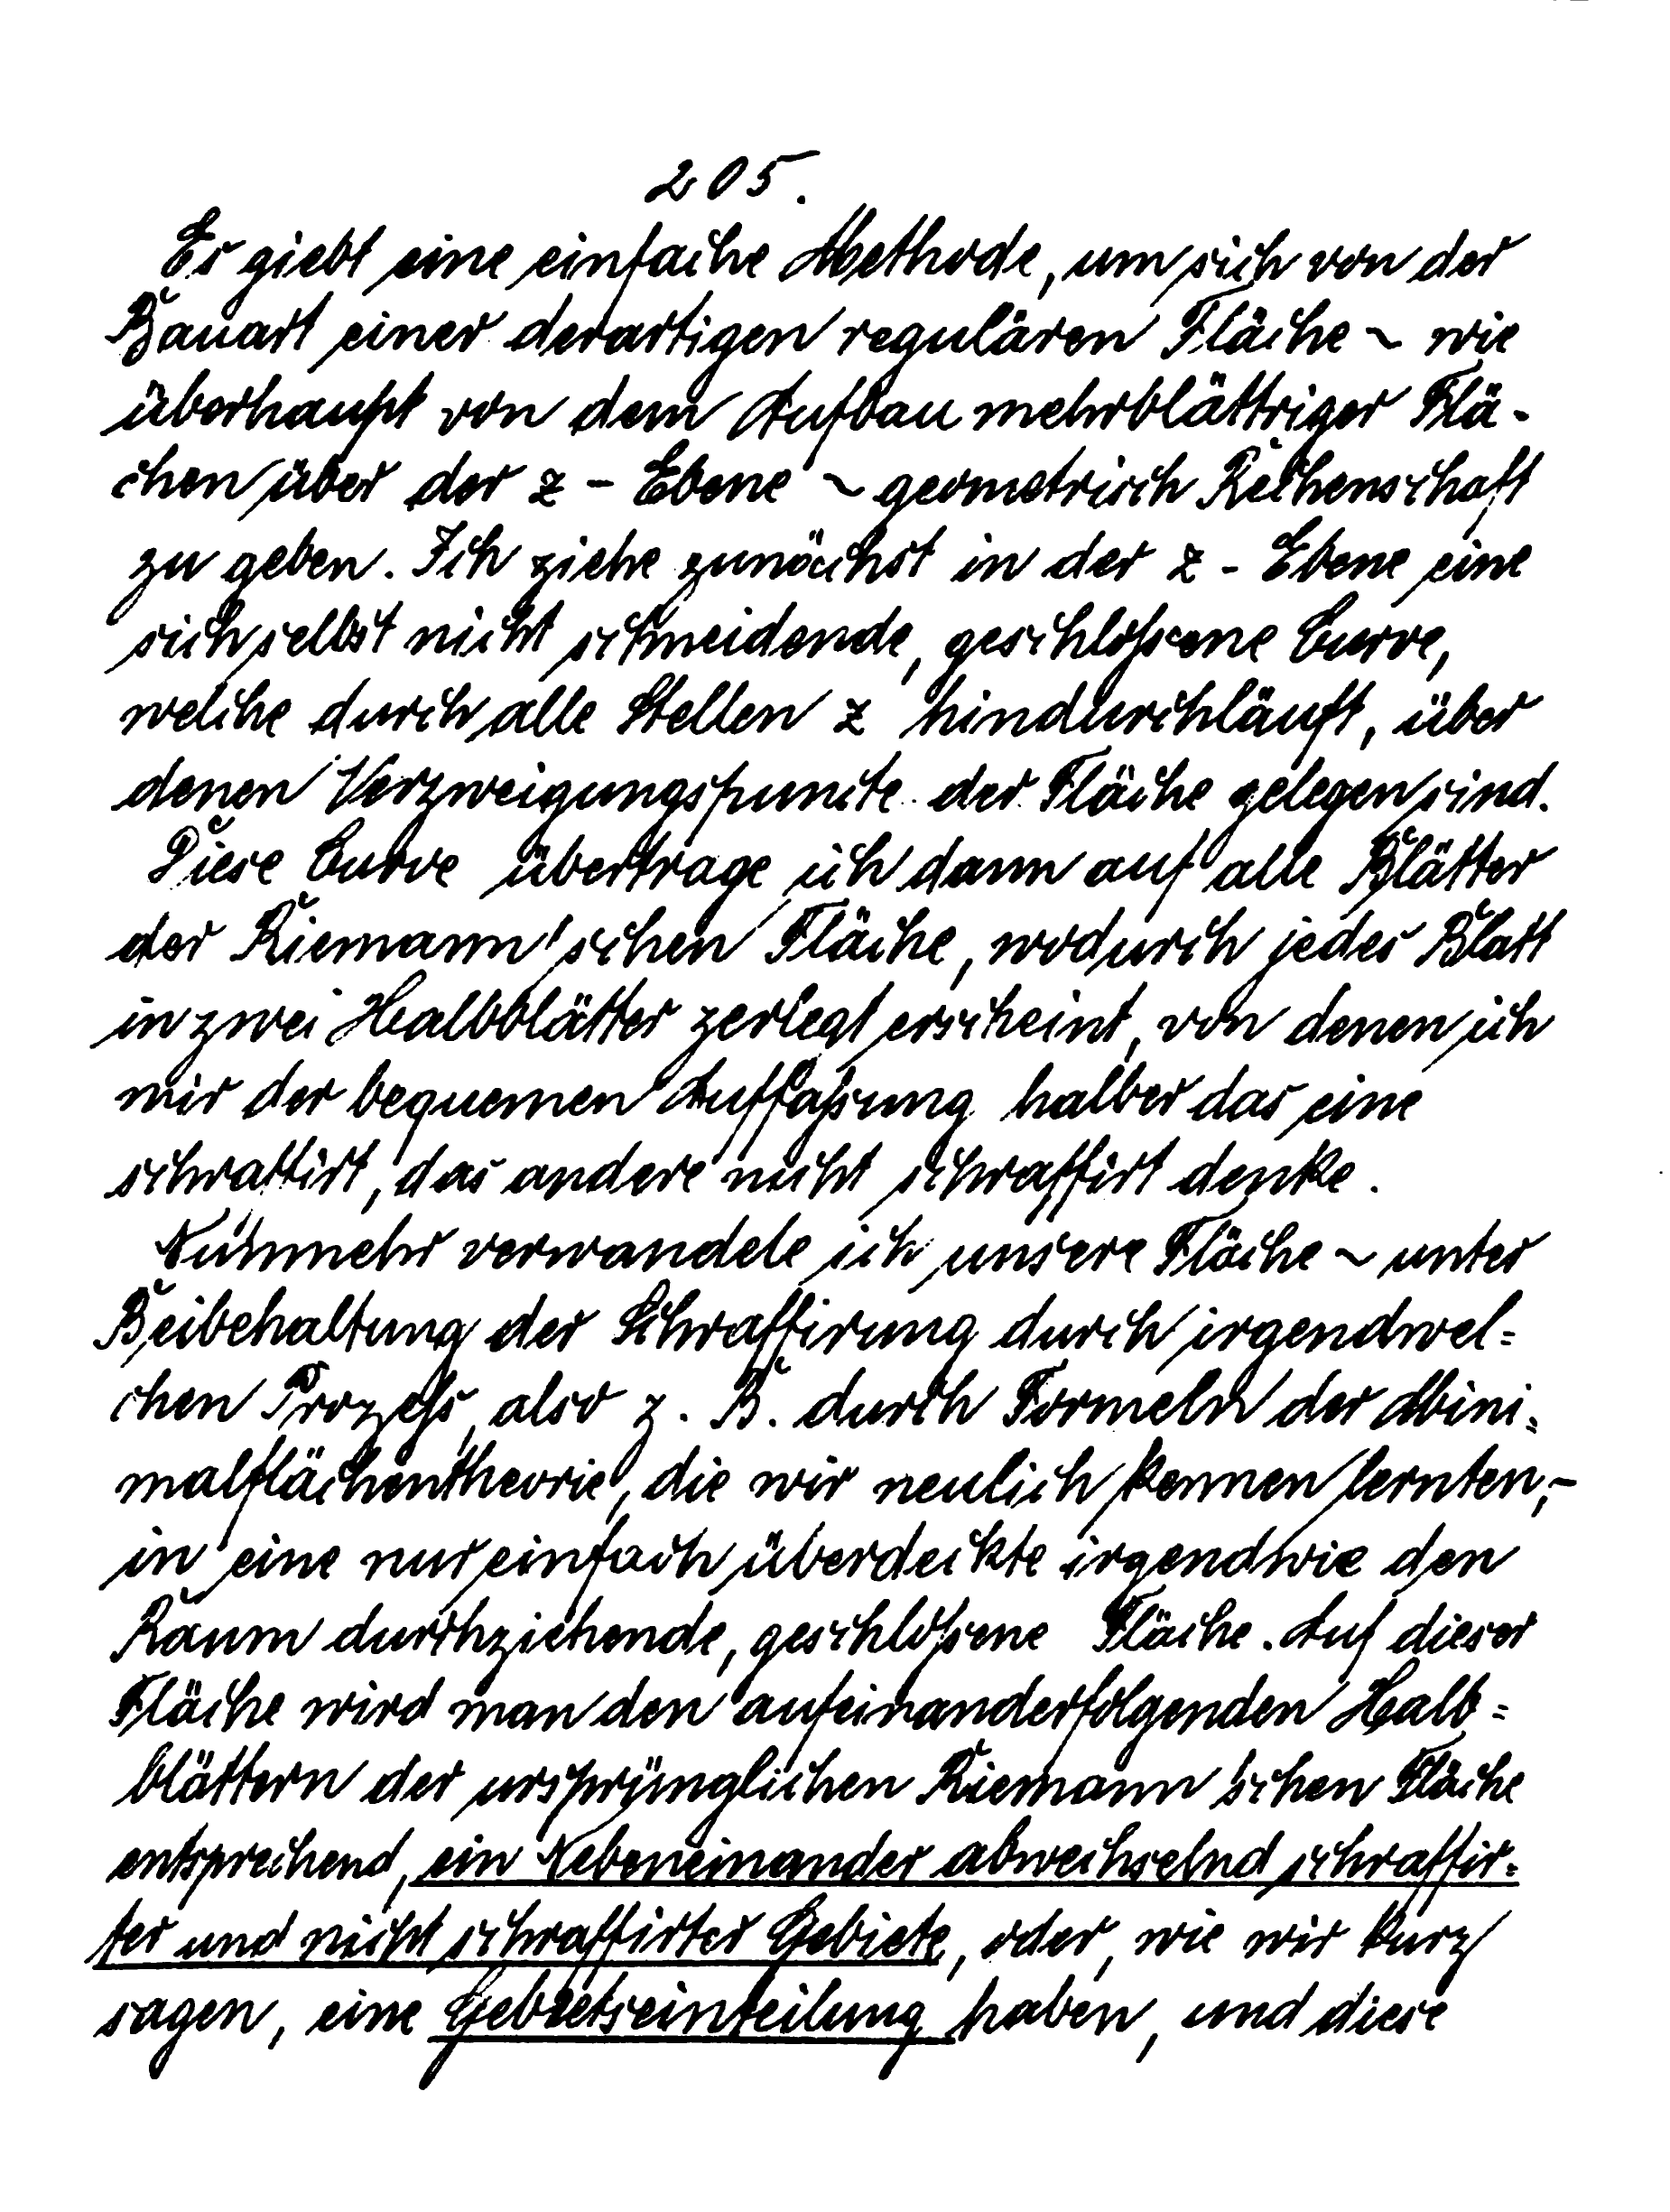 205.
Es giebt eine einfache Methode, um sich von der
Bauart einer derartigen regulären Fläche ~ wie
überhaupt von dem Aufbau mehrblättriger Flä-
chen über der z - Ebene ~ geometrisch Rechenschaft
zu geben. Ich ziehe zunächst in der z - Ebene eine
sich selbst nicht schneidende, geschloßene Curve,
welche durch alle Stellen z hindurchläuft, über
denen Verzweigungspuncte der Fläche gelegen sind.
Diese Curve übertrage ich dann auf alle Blätter
der Riemann'schen Fläche, wodurch jedes Blatt
in zwei Halbblätter zerlegt erscheint, von denen ich
mir der bequemen Auffaßung halber das eine
schraffirt, das andere nicht schraffirt denke.
Nunmehr verwandele ich unsere Fläche ~ unter
Beibehaltung der Schraffirung durch irgendwel=
chen Prozeß, also z. B. durch Formeln der Mini=
malflächentheorie, die wir neulich kennen lernten,-
in eine nur einfach überdeckte irgendwie den
Raum durchziehende, geschloßene Fläche. Auf dieser
Fläche wird man den aufeinanderfolgenden Halb=
blättern der ursprünglichen Riemann'schen Fläche
entsprechend, ein Nebeneinander abwechselnd schraffir=
ter und nicht schraffirter Gebiete, oder, wie wir kurz
sagen, eine Gebietseinteilung haben, und diese